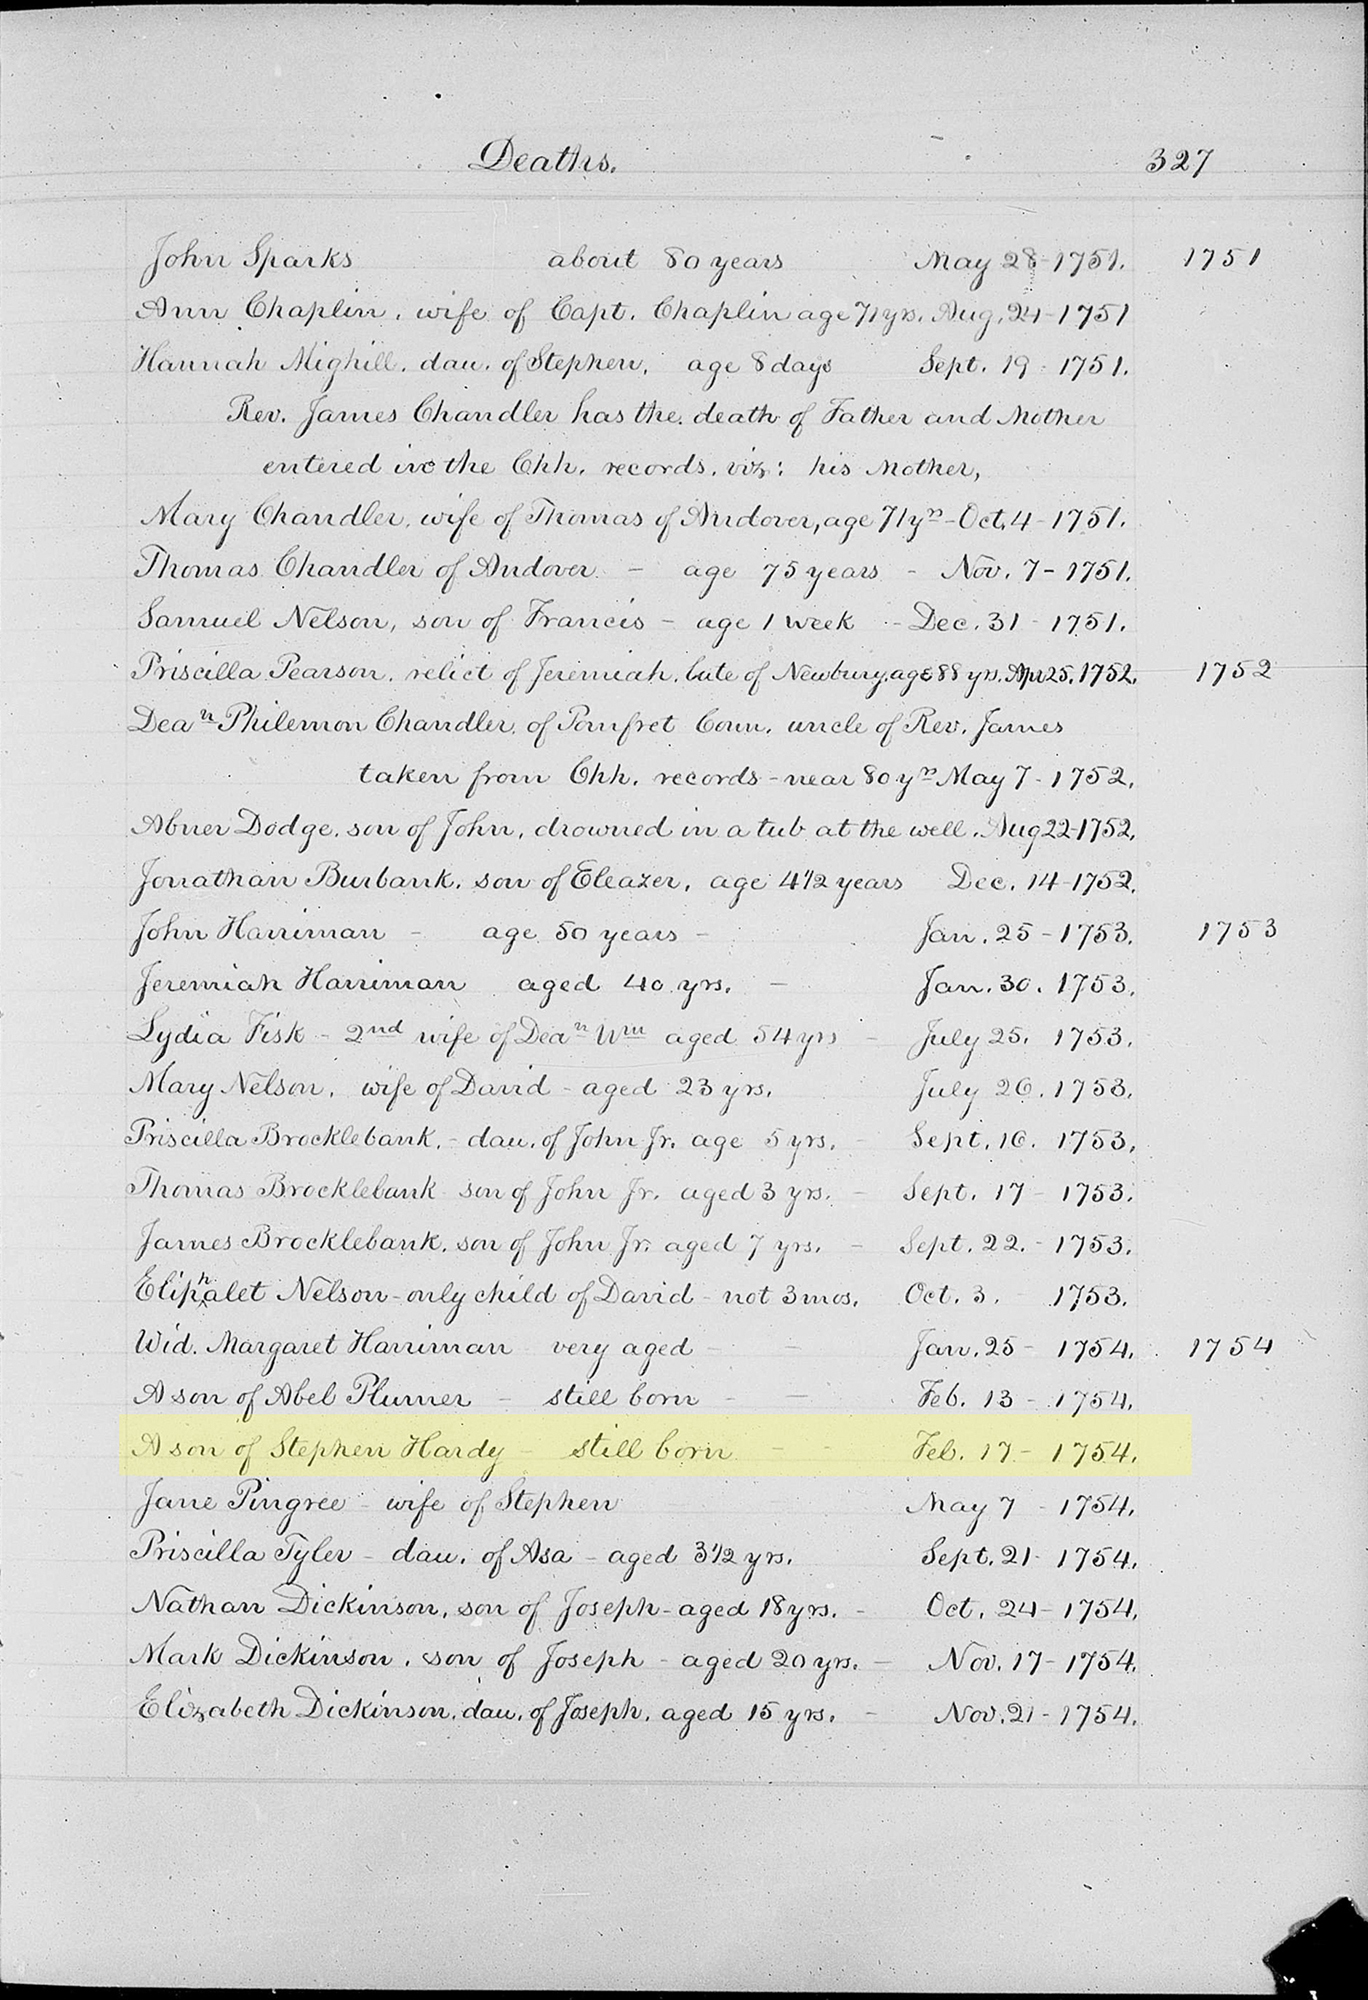 Deaths. 327
John Sparks about 80 years May 28-1751. 1751
Ann Chaplin, wife of Capt. Chaplin age 71 yrs. Aug. 24-1751
Hannah Mighill, dau. of Stephen, age 8 days Sept. 19-1751.
Rev. James Chandler has the death of Father and Mother
entered in the Chh. records, viz: his Mother,
Mary Chandler, wife of Thomas of Andover, age 71 yrs - Oct. 4-1751.
Thomas Chandler of Andover - age 75 years - Nov. 7-1751.
Samuel Nelson, son of Francis - age 1 week - Dec. 31-1751.
Priscilla Pearson, relict of Jeremiah, late of Newbury, age 88 yrs. Apr 25, 1752. 1752
Deaⁿ Philemon Chandler, of Pomfret Conn. uncle of Rev. James
taken from Chh. records - near 80 yrs May 7-1752.
Abner Dodge, son of John, drowned in a tub at the well. Aug 22-1752.
Jonathan Burbank, son of Eleazer, age 4 1/2 years Dec. 14-1752.
John Harriman - age 50 years - Jan. 25-1753. 1753
Jeremiah Harriman aged 40 yrs. - Jan. 30. 1753.
Lydia Fisk - 2nd wife of Deaⁿ Wm aged 54 yrs - July 25. 1753.
Mary Nelson, wife of David - aged 23 yrs. July 26. 1753.
Priscilla Brocklebank, - dau. of John Jr. age 5 yrs. - Sept. 16. 1753.
Thomas Brocklebank son of John Jr. aged 3 yrs. - Sept. 17-1753.
James Brocklebank, son of John Jr. aged 7 yrs. - Sept. 22.-1753.
Eliphalet Nelson - only child of David - not 3 mos. Oct. 3. 1753.
Wid. Margaret Harriman very aged - - Jan. 25-1754. 1754
A son of Abel Plumer - still born - - Feb. 13-1754.
A son of Stephen Hardy - still born - - Feb. 17-1754.
Jane Pingree - wife of Stephen May 7-1754.
Priscilla Tyler - dau. of Asa - aged 3 1/2 yrs. Sept. 21-1754.
Nathan Dickinson, son of Joseph - aged 18 yrs. - Oct. 24-1754.
Mark Dickinson, son of Joseph - aged 20 yrs. - Nov. 17-1754.
Elizabeth Dickinson, dau. of Joseph, aged 15 yrs. - Nov. 21-1754.